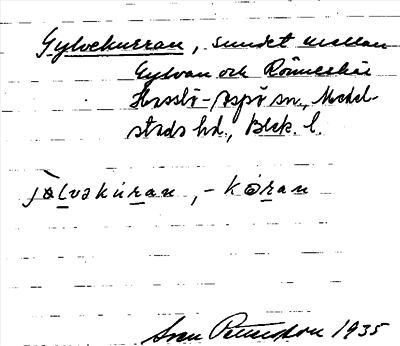 Gylvekurran, sundet mellan
Gylvan och Rönneskär
Hasslö-Aspö sn., Medel-
stads hd., Blek. l.
jàlvakúran, - kɵran
Sven Petersson 1935